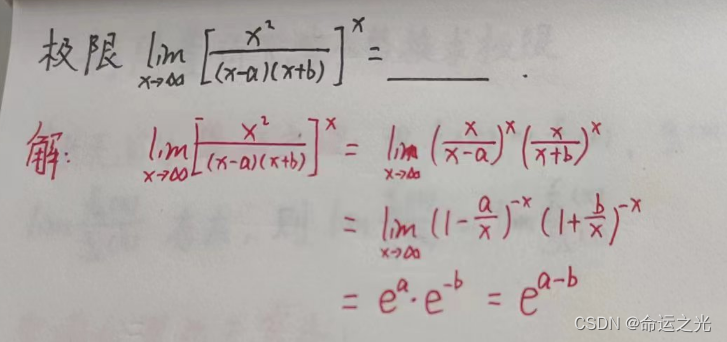 极限 lim x→∞ [x²/((x-a)(x+b))]^x = ______ .
解: lim x→∞ [x²/((x-a)(x+b))]^x = lim x→∞ (x/(x-a))^x (x/(x+b))^x
= lim x→∞ (1-a/x)^-x (1+b/x)^-x
= e^a · e^-b = e^a-b
CSDN @命运之光